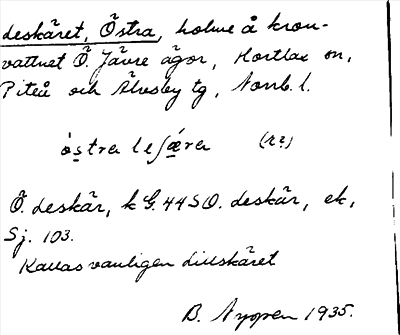 deskäret, Östra, holme å kron-
vattnet Ö. Jävre ägor, Hortlax sn,
Piteå och Älvsby tg, Norrb. l.
östra leſæra (r2)
Ö. deskär, k G. 44 S O. deskär, ek,
Sj. 103.
Kallas vanligen dillskäret
B. 1935.